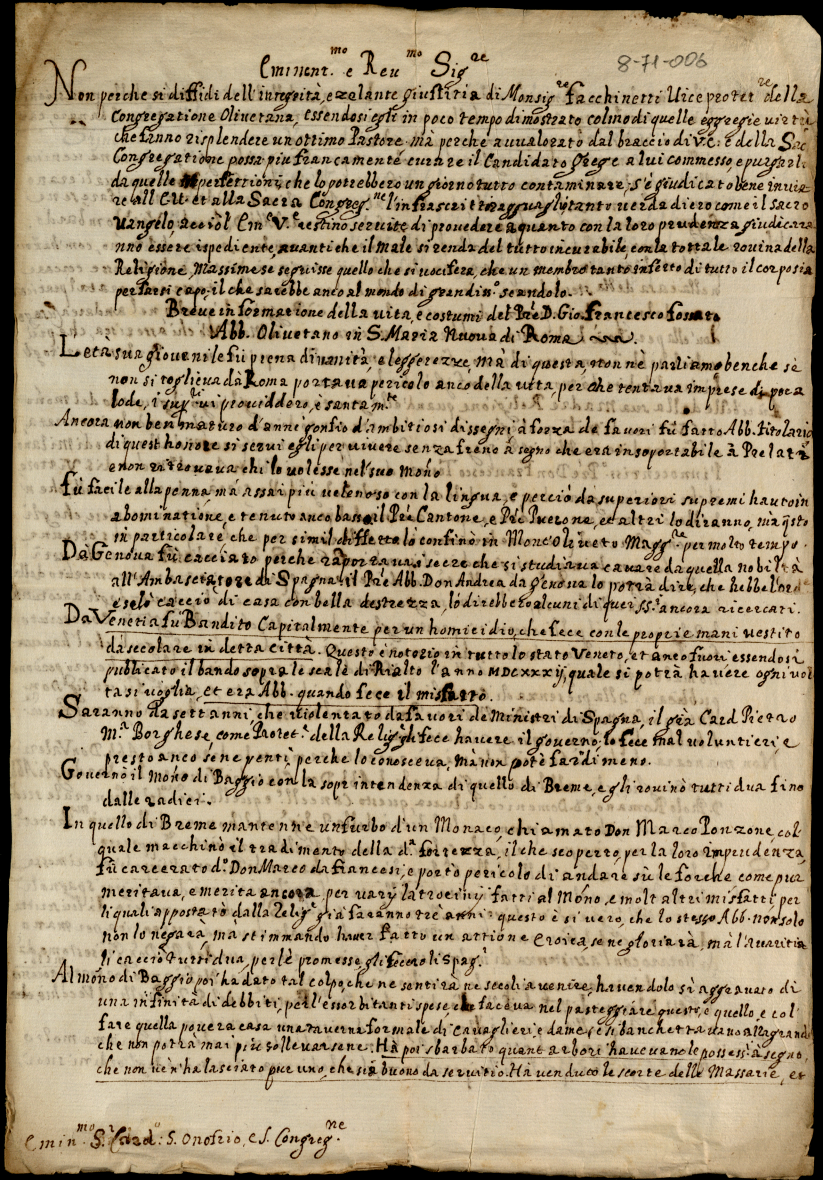 8-71-006
Eminent.mo e Reu.mo Sig.re
Non perche si diffidi dell'integrità, e zelante giustitia di Monsig.re Facchinetti Uiceprotet.re della
Congregatione Olivetana, essendosi egli in poco tempo dimostrato colmo di quelle eggregie virtù
che fanno risplendere un ottimo Pastore. mà perche avvalorato dal braccio di V.E. e della Sac.
Congregatione possa più francamente curare il Candidato Grege a lui commesso, e purgarli
da quelle imperfettioni, che lo potrebbero un giorno tutto contaminare, s'è giudicato bene invia
re all' E.V. et alla Sacra Congreg.ne l'infrascritto ragguaglio tanto verdadiero come il sacro
Vangelo, acciò l' Em.e V.e restino servite di provedere a quanto con la loro prudenza giudicara
nno essere ispediente, avanti che il male si renda del tutto incurabile, con la tottale rovina della
Religione, Massime se seguisse quello che si vocifera, che un membro tanto infetto di tutto il corpo sia
per farsi capo, il che sarebbe anco al mondo di grandiss.o scandolo.
Breve informatione della vita, e costumi del P're D. Gio. Francesco Fossato
Abb. Olivetano in S. Maria Nuova di Roma.
L'età sua giovenile fù piena di vanità, e leggerezze, mà di questa, non nè parliamo benche sè
non si toglieva dà Roma portava pericolo anco della vita, perche tentava imprese di poca
lode, i sup.ri vi providdero, e santam.te
Ancora non ben maturo d'anni gonfio d'ambitiosi dissegni à forza de favori fù fatto Abb. titolario
di quest honore si servì egli per vivere senza freno à segno che era insoportabile à Prelati
e non ritrovava chi lo volesse nel suo Mon'o
Fù facile alla penna, mà assai più velenoso con la lingua, e perciò da superiori supremi hauto in
abominatione, e tenuto anco basso, il P're Cantone, e P're Puerone, et altri lo diranno, ma q'sto
in particolare che per simil diffetto lo confinò in Monte Oliveto Magg.re per molto tempo.
Dà Genova fù cacciato perche raportava i secreti che si studiava cavare da quella nobiltà
all'Ambasciatore di Spagna, il P're Abb. Don Andrea da Genova lo potrà dire, che hebbe l'ord
e se lo cacciò di casa con bella destrezza, lo direbbero alcuni di quei SS.ri ancora ricercati.
Da Venetia fù Bandito Capitalmente per un homicidio, che fece con le proprie mani vestito
da secolare in detta città. Questo è notorio in tutto lo stato Veneto, et anco fuori essendosi
publicato il bando sopra le scale di Rialto l'anno MDCXXXij, quale si potrà havere ogni vol
ta si voglia, et era Abb. quando fece il misfatto.
Saranno da sett'anni, che violentato da favori de Ministri di Spagna, il già Card. Pietro
M.a Borghese, come Protet.e della Relig. gli fece havere il governo, lo fece mal voluntieri, e
presto anco se ne pentì, perche lo conosceva, mà non potè far di meno.
Governò il Mon'o di Baggio con la sopr'intendenza di quello di Breme, e gli rovinò tutti dua fino
dalle radici.
In quello di Breme mantenne un furbo d'un Monaco, chiamato Don Marco Ponzone, col
quale macchinò il tradimento della d.a fortezza, il che scoperto, per la loro imprudenza,
fù carcerato d.o Don Marco da Francesi, e portò pericolo di andare sù le forche come pur
meritava, e merita ancora per varij latrocinij fatti al Mon'o, e molt'altri misfatti, per
li quali appostatò dalla Relig.e già saranno trè anni: questo è sì vero, che lo stesso Abb. non solo
non lo negarà, ma stimmando haver fatto un attione Eroica, se ne gloriarà, mà l'Avaritia
li cacciò tutti dua, per le promesse, gli fecero li Spag.i
Al mon'o di Baggio poi hà dato tal colpo, che ne sentirà ne secoli a venire, havendolo sì aggravato di
una infinità di debbiti, per l'essorbitanti spese, che faceva nel pasteggiare questo, e quello, e col
fare quella povera casa una taverna formale di Cavaglieri e dame, e si banchettavano alla grande
che non potrà mai più sollevarsene. Hà poi sbarbato quant'arbori havevano le possess.i à segno,
che non vè n'hà lasciato pur uno, che sia buono da servitio. Hà venduto le scorte delle Massarie, et
Emin.mo S.r Card. S. Onofrio, e S. Congreg.ne